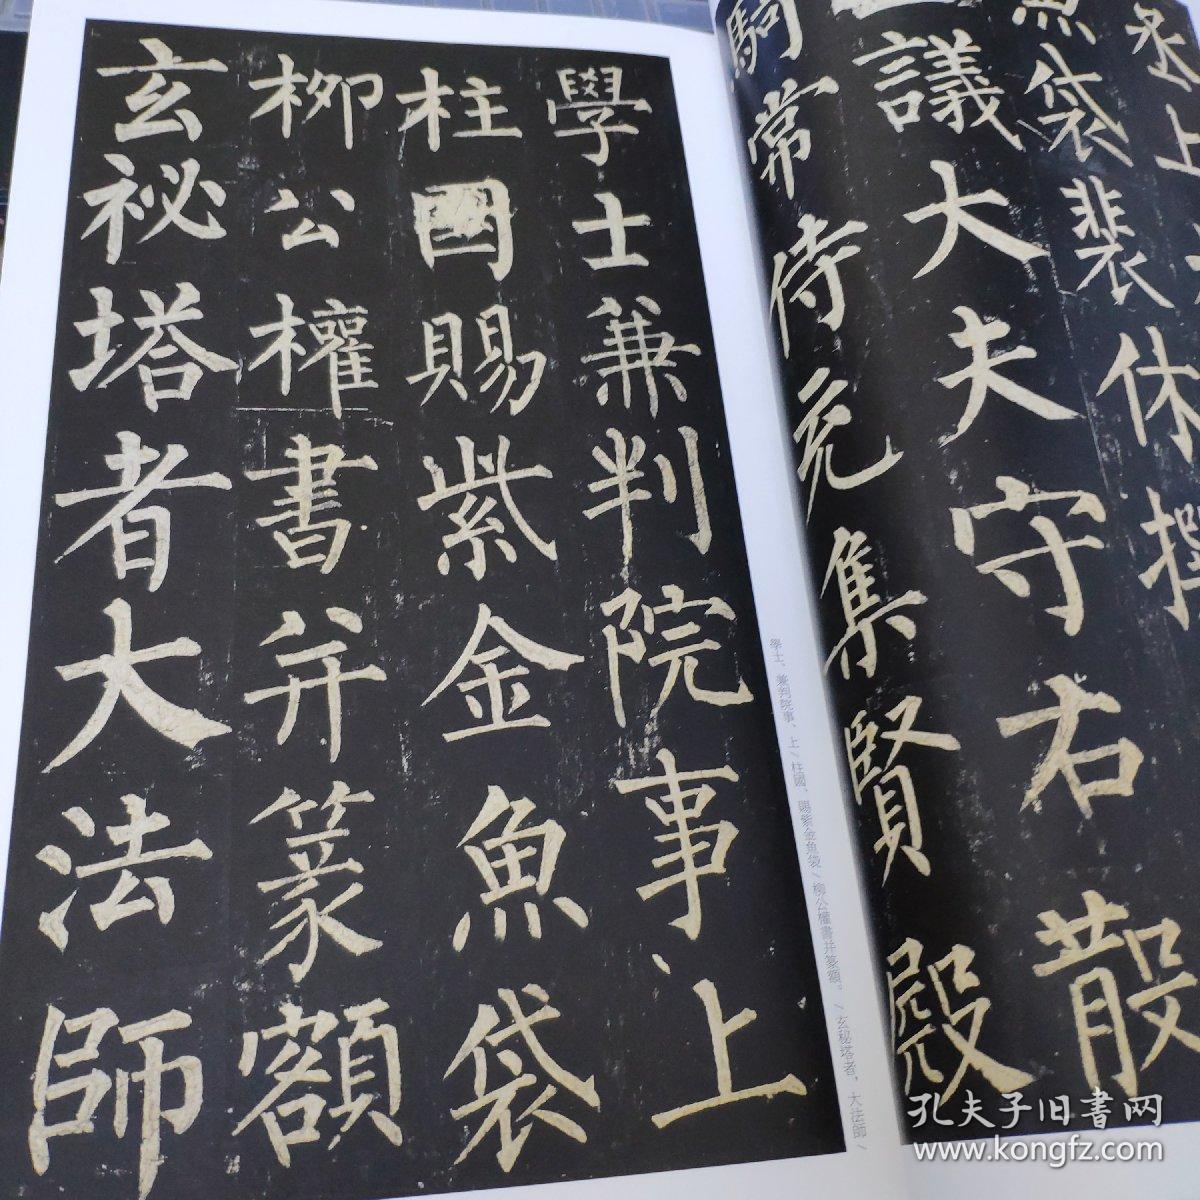 丞上
魚袋裴休撰
議大夫守右散
騎常侍充集賢殿
學士兼判院事上
柱國賜紫金魚袋
柳公權書并篆額
玄祕塔者大法師
學士、兼判院事、上/柱國、賜紫金魚袋/柳公權書并篆額。/玄秘塔者，大法師/
孔夫子旧书网
www.kongfz.com